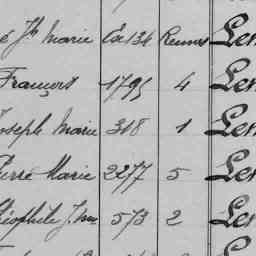 é Jh Marie Ex 134 Rennes Le
François 1795 4 Le
Joseph Marie 318 1 Le
Pierre Marie 2277 5 Le
Théophile J. 573 2 Le